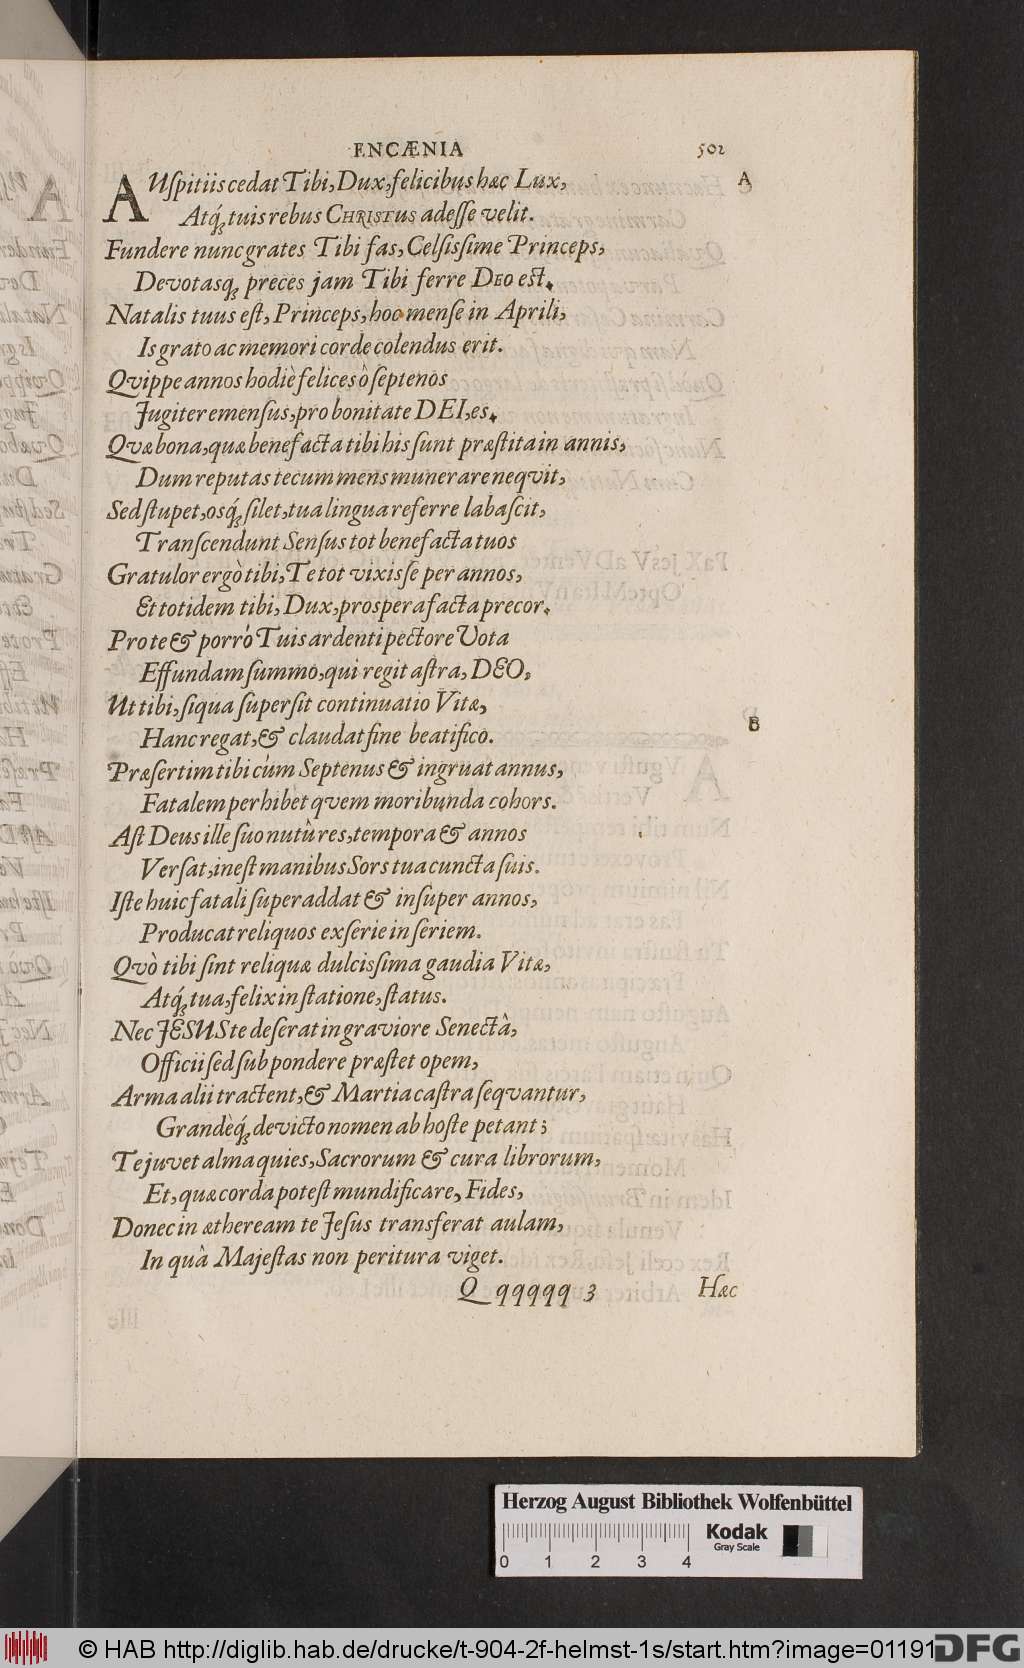 ENCÆNIA 502
AUſpitiis cedat Tibi, Dux, felicibus hæc Lux, A
Atq́ꝫ tuis rebus CHRISTUS adeſſe velit.
Fundere nunc grates Tibi fas, Celſisſime Princeps,
Devotasqꝫ preces jam Tibi ferre DEO eſt.
Natalis tuus eſt, Princeps, hoc menſe in Aprili,
Is grato ac memori corde colendus erit.
Qvippe annos hodiè felices ò ſeptenos
Jugiter emenſus, pro bonitate DEI, es.
Qvæ bona, quæ benefacta tibi his ſunt præſtita in annis,
Dum reputas tecum mens munerare neqvit,
Sed ſtupet, osq́ꝫ ſilet, tua lingua referre labaſcit,
Tranſcendunt Senſus tot benefacta tuos
Gratulor ergò tibi, Te tot vixisſe per annos,
Et totidem tibi, Dux, proſpera facta precor.
Pro te & porrò Tuis ardenti pectore Vota
Effundam ſummo, qui regit aſtra, DEO,
Ut tibi, ſiqua ſuperſit continuatio Vitæ,
Hanc regat, & claudat fine beatifico. B
Præſertim tibi cùm Septenus & ingruat annus,
Fatalem perhibet qvem moribunda cohors.
Aſt Deus ille ſuo nutû res, tempora & annos
Verſat, ineſt manibus Sors tua cuncta ſuis.
Iſte huic fatali ſuperaddat & inſuper annos,
Producat reliquos ex ſerie in ſeriem.
Qvò tibi ſint reliquæ dulcisſima gaudia Vitæ,
Atq́ꝫ tua, felix in ſtatione, ſtatus.
Nec JESUS te deſerat in graviore Senectâ,
Officii ſed ſub pondere præſtet opem,
Arma alii tractent, & Martia caſtra ſeqvantur,
Grandèq́ꝫ devicto nomen ab hoſte petant;
Te juvet alma quies, Sacrorum & cura librorum,
Et, quæ corda poteſt mundificare, Fides,
Donec in ætheream te Jeſus transferat aulam,
In quâ Majeſtas non peritura viget.
Q qqqqq 3 Hæc
Herzog August Bibliothek Wolfenbüttel
Kodak
Gray Scale
0 1 2 3 4
© HAB http://diglib.hab.de/drucke/t-904-2f-helmst-1s/start.htm?image=01191
DFG